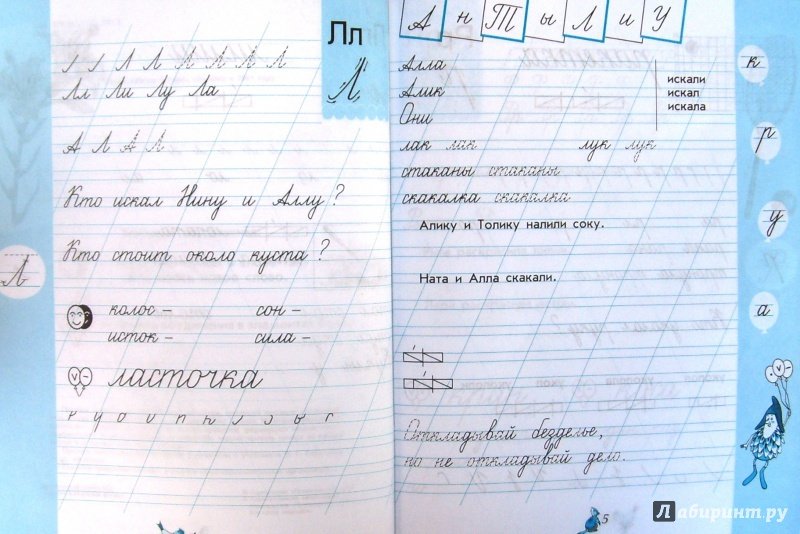 Лл
Л
Л Л Л Л Л Л
Лл Ли Лу Ла
А Л А Л
Кто искал Нину и Аллу?
Кто стоит около куста?
Л
колос – сон –
исток – сила –
ласточка
А н Т ы Л и У
Алла
Алик
Они
искали
искал
искала
лак лак лук лук
стаканы стаканы
скакалка скакалка
Алику и Толику налили соку.
Ната и Алла скакали.
Откладывай безделье,
но не откладывай дело.
5
к
р
у
а
Лабиринт.ру